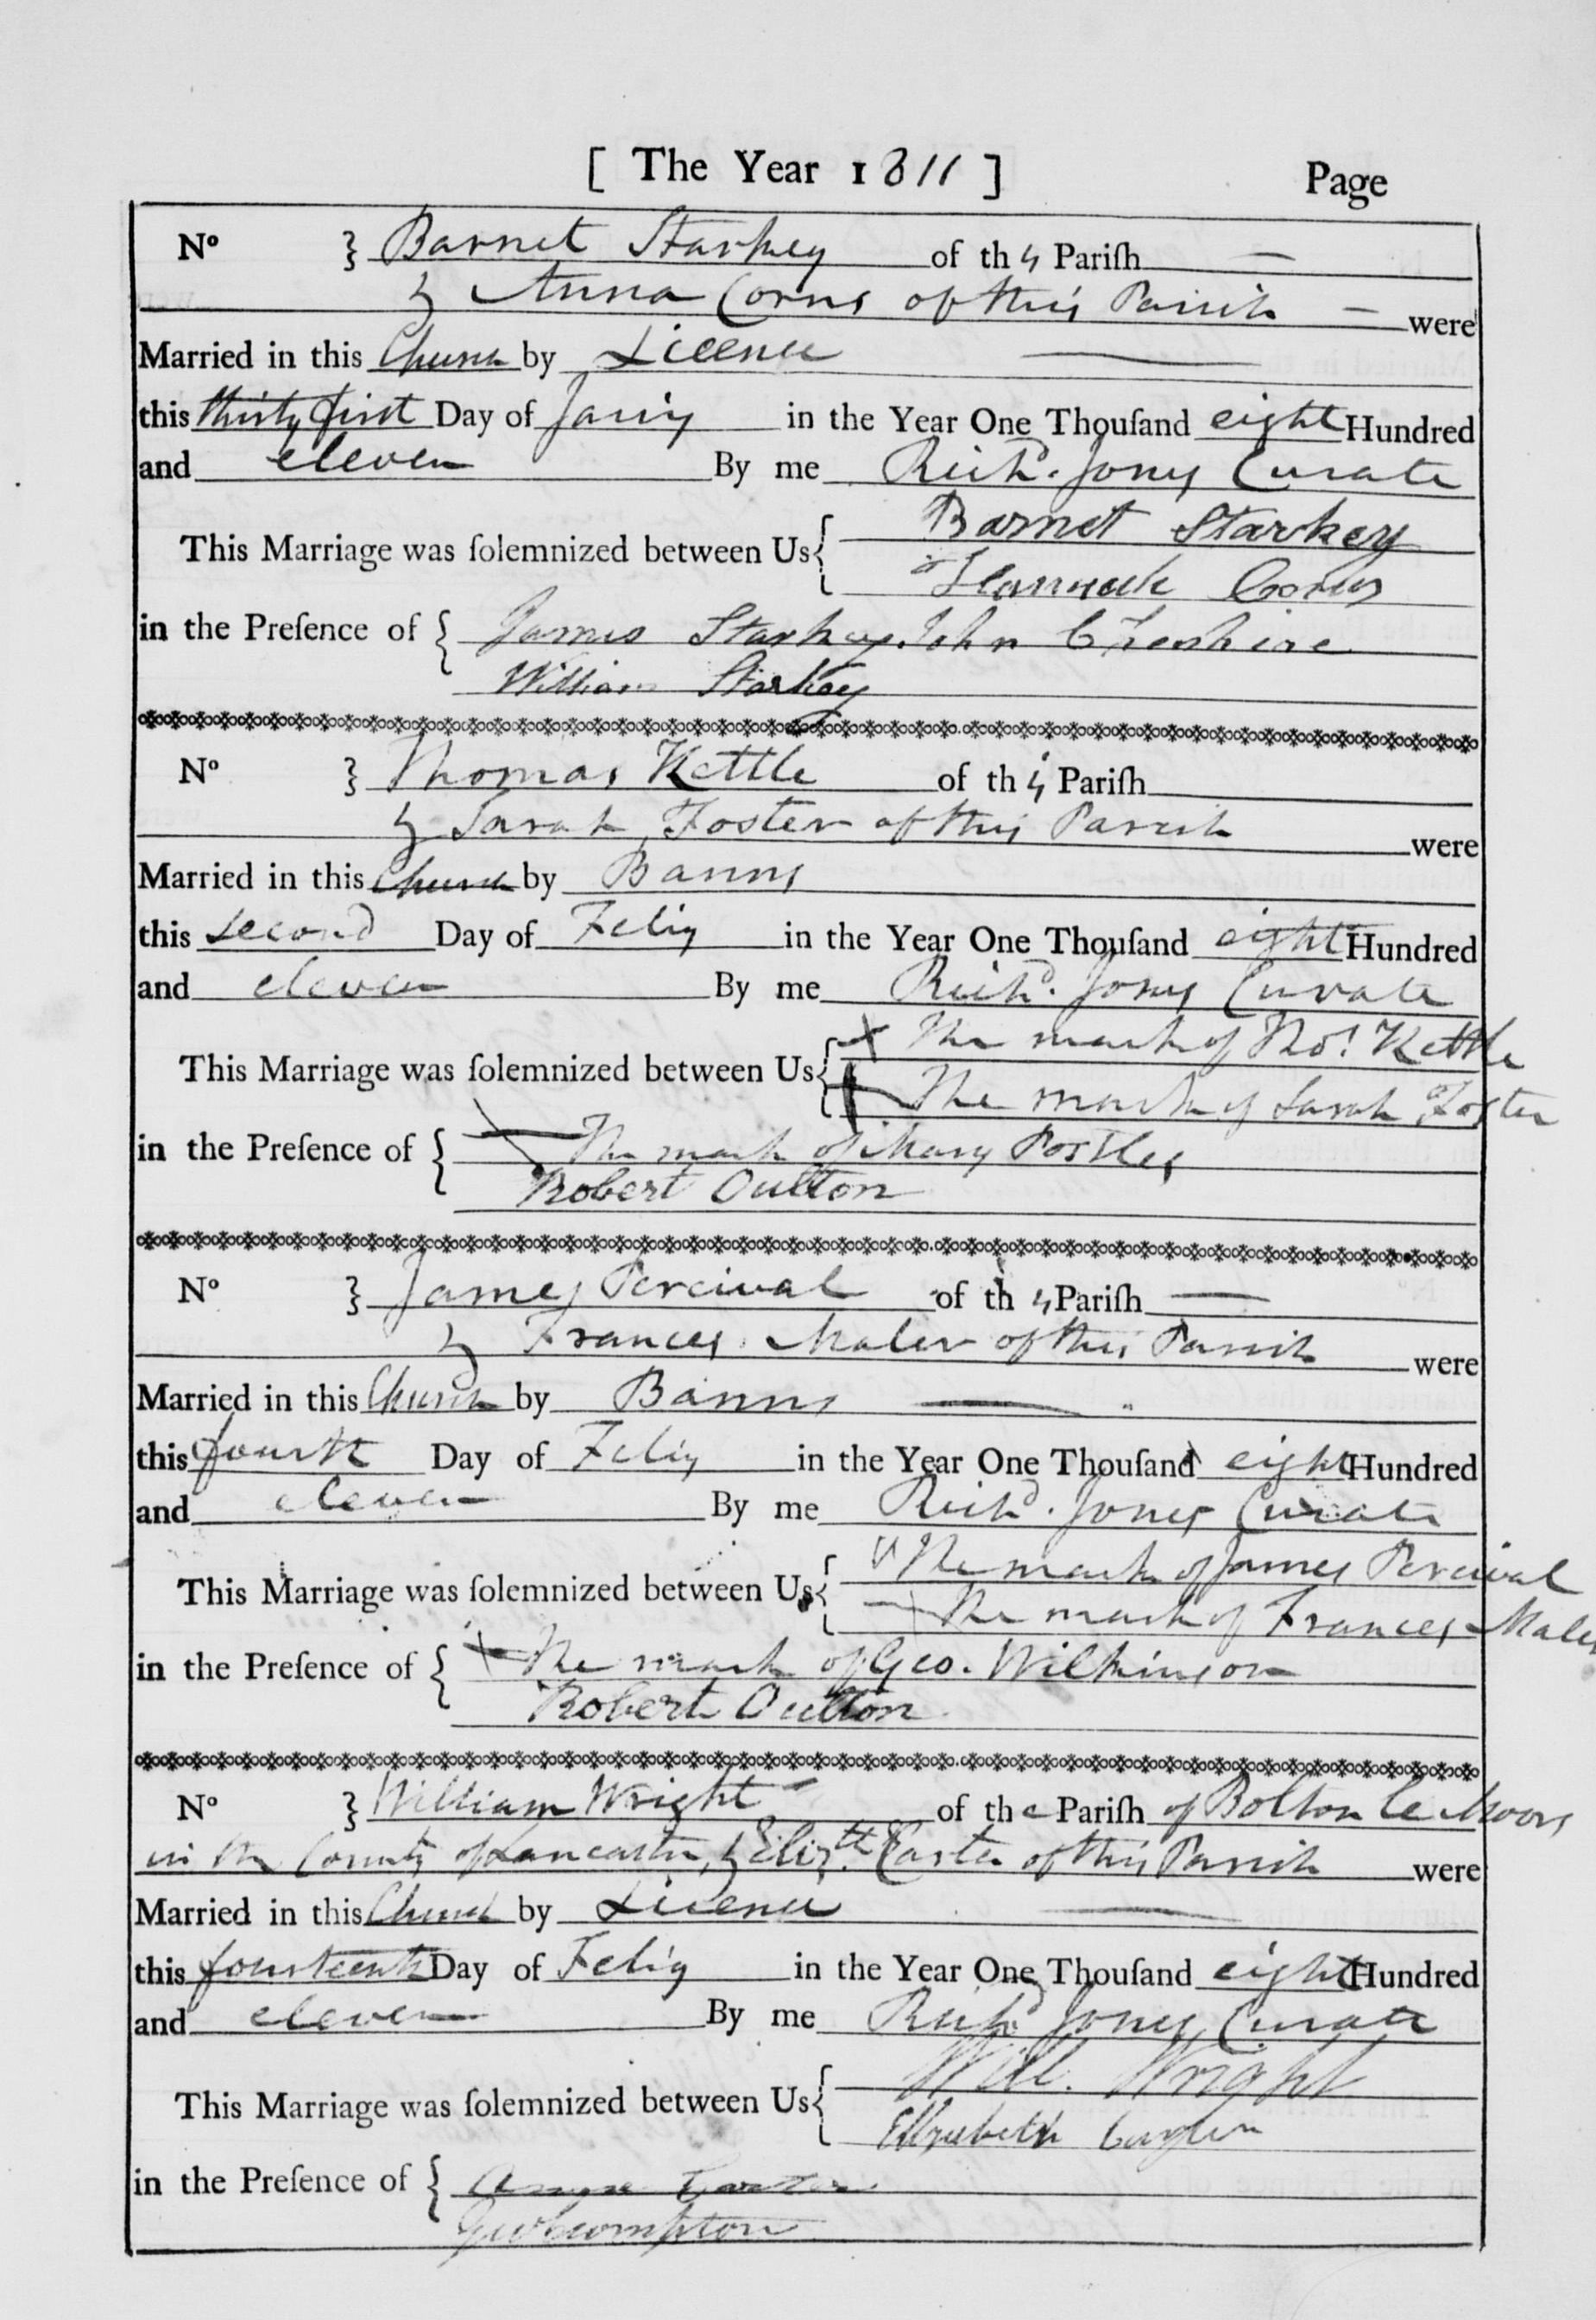 [ The Year 1811 ] Page
No } Barnet Starkey of this Pariſh
& Anna Corns of this Parish were
Married in this Church by Licence
this thirty first Day of Janry in the Year One Thouſand eight Hundred
and eleven By me Richd. Jones Curate
This Marriage was ſolemnized between Us { Barnet Starkey
Hannah Corns
in the Preſence of { James Starkey John Cheshire
William Starkey
No } Thomas Kettle of this Pariſh
& Sarah Foster of this Parish were
Married in this Church by Banns
this second Day of Febry in the Year One Thouſand eight Hundred
and eleven By me Richd. Jones Curate
This Marriage was ſolemnized between Us { X The mark of Thos. Kettle
The mark of Sarah Foster
in the Preſence of { The mark of Mary Postles
Robert Oulton
No } James Percival of this Pariſh
& Frances Maler of this Parish were
Married in this Church by Banns
this fourth Day of Febry in the Year One Thouſand eight Hundred
and eleven By me Richd. Jones Curate
This Marriage was ſolemnized between Us { The mark of James Percival
The mark of Frances Maler
in the Preſence of { The mark of Geo. Wilkinson
Robert Oulton
No } William Wright of the Pariſh of Bolton le Moors
in the County of Lancaster, & Elizth. Carter of this Parish were
Married in this Church by Licence
this fourteenth Day of Febry in the Year One Thouſand eight Hundred
and eleven By me Richd Jones Curate
This Marriage was ſolemnized between Us { Will. Wright
Elizabeth Carter
in the Preſence of { Carter